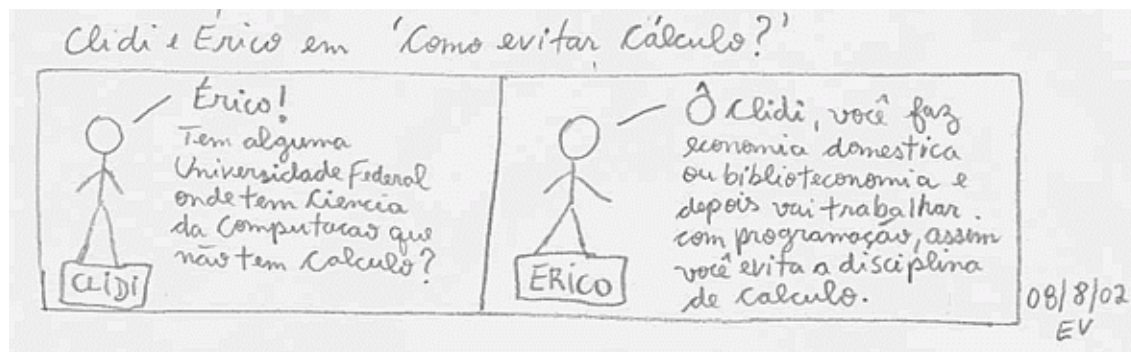 Clidi e Érico em 'Como evitar Cálculo?'
Érico!
Tem alguma
Universidade Federal
onde tem Ciencia
da Computacao que
não tem Calculo?
CLiDi
Ô Clidi, você faz
economia domestica
ou biblioteconomia e
depois vai trabalhar.
com programação, assim
você evita a disciplina
de Calculo.
ERiCO
08/8/02
EV